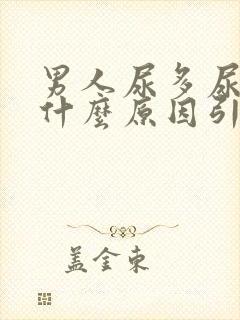 男人尿多尿
什麼原因引
盖金東